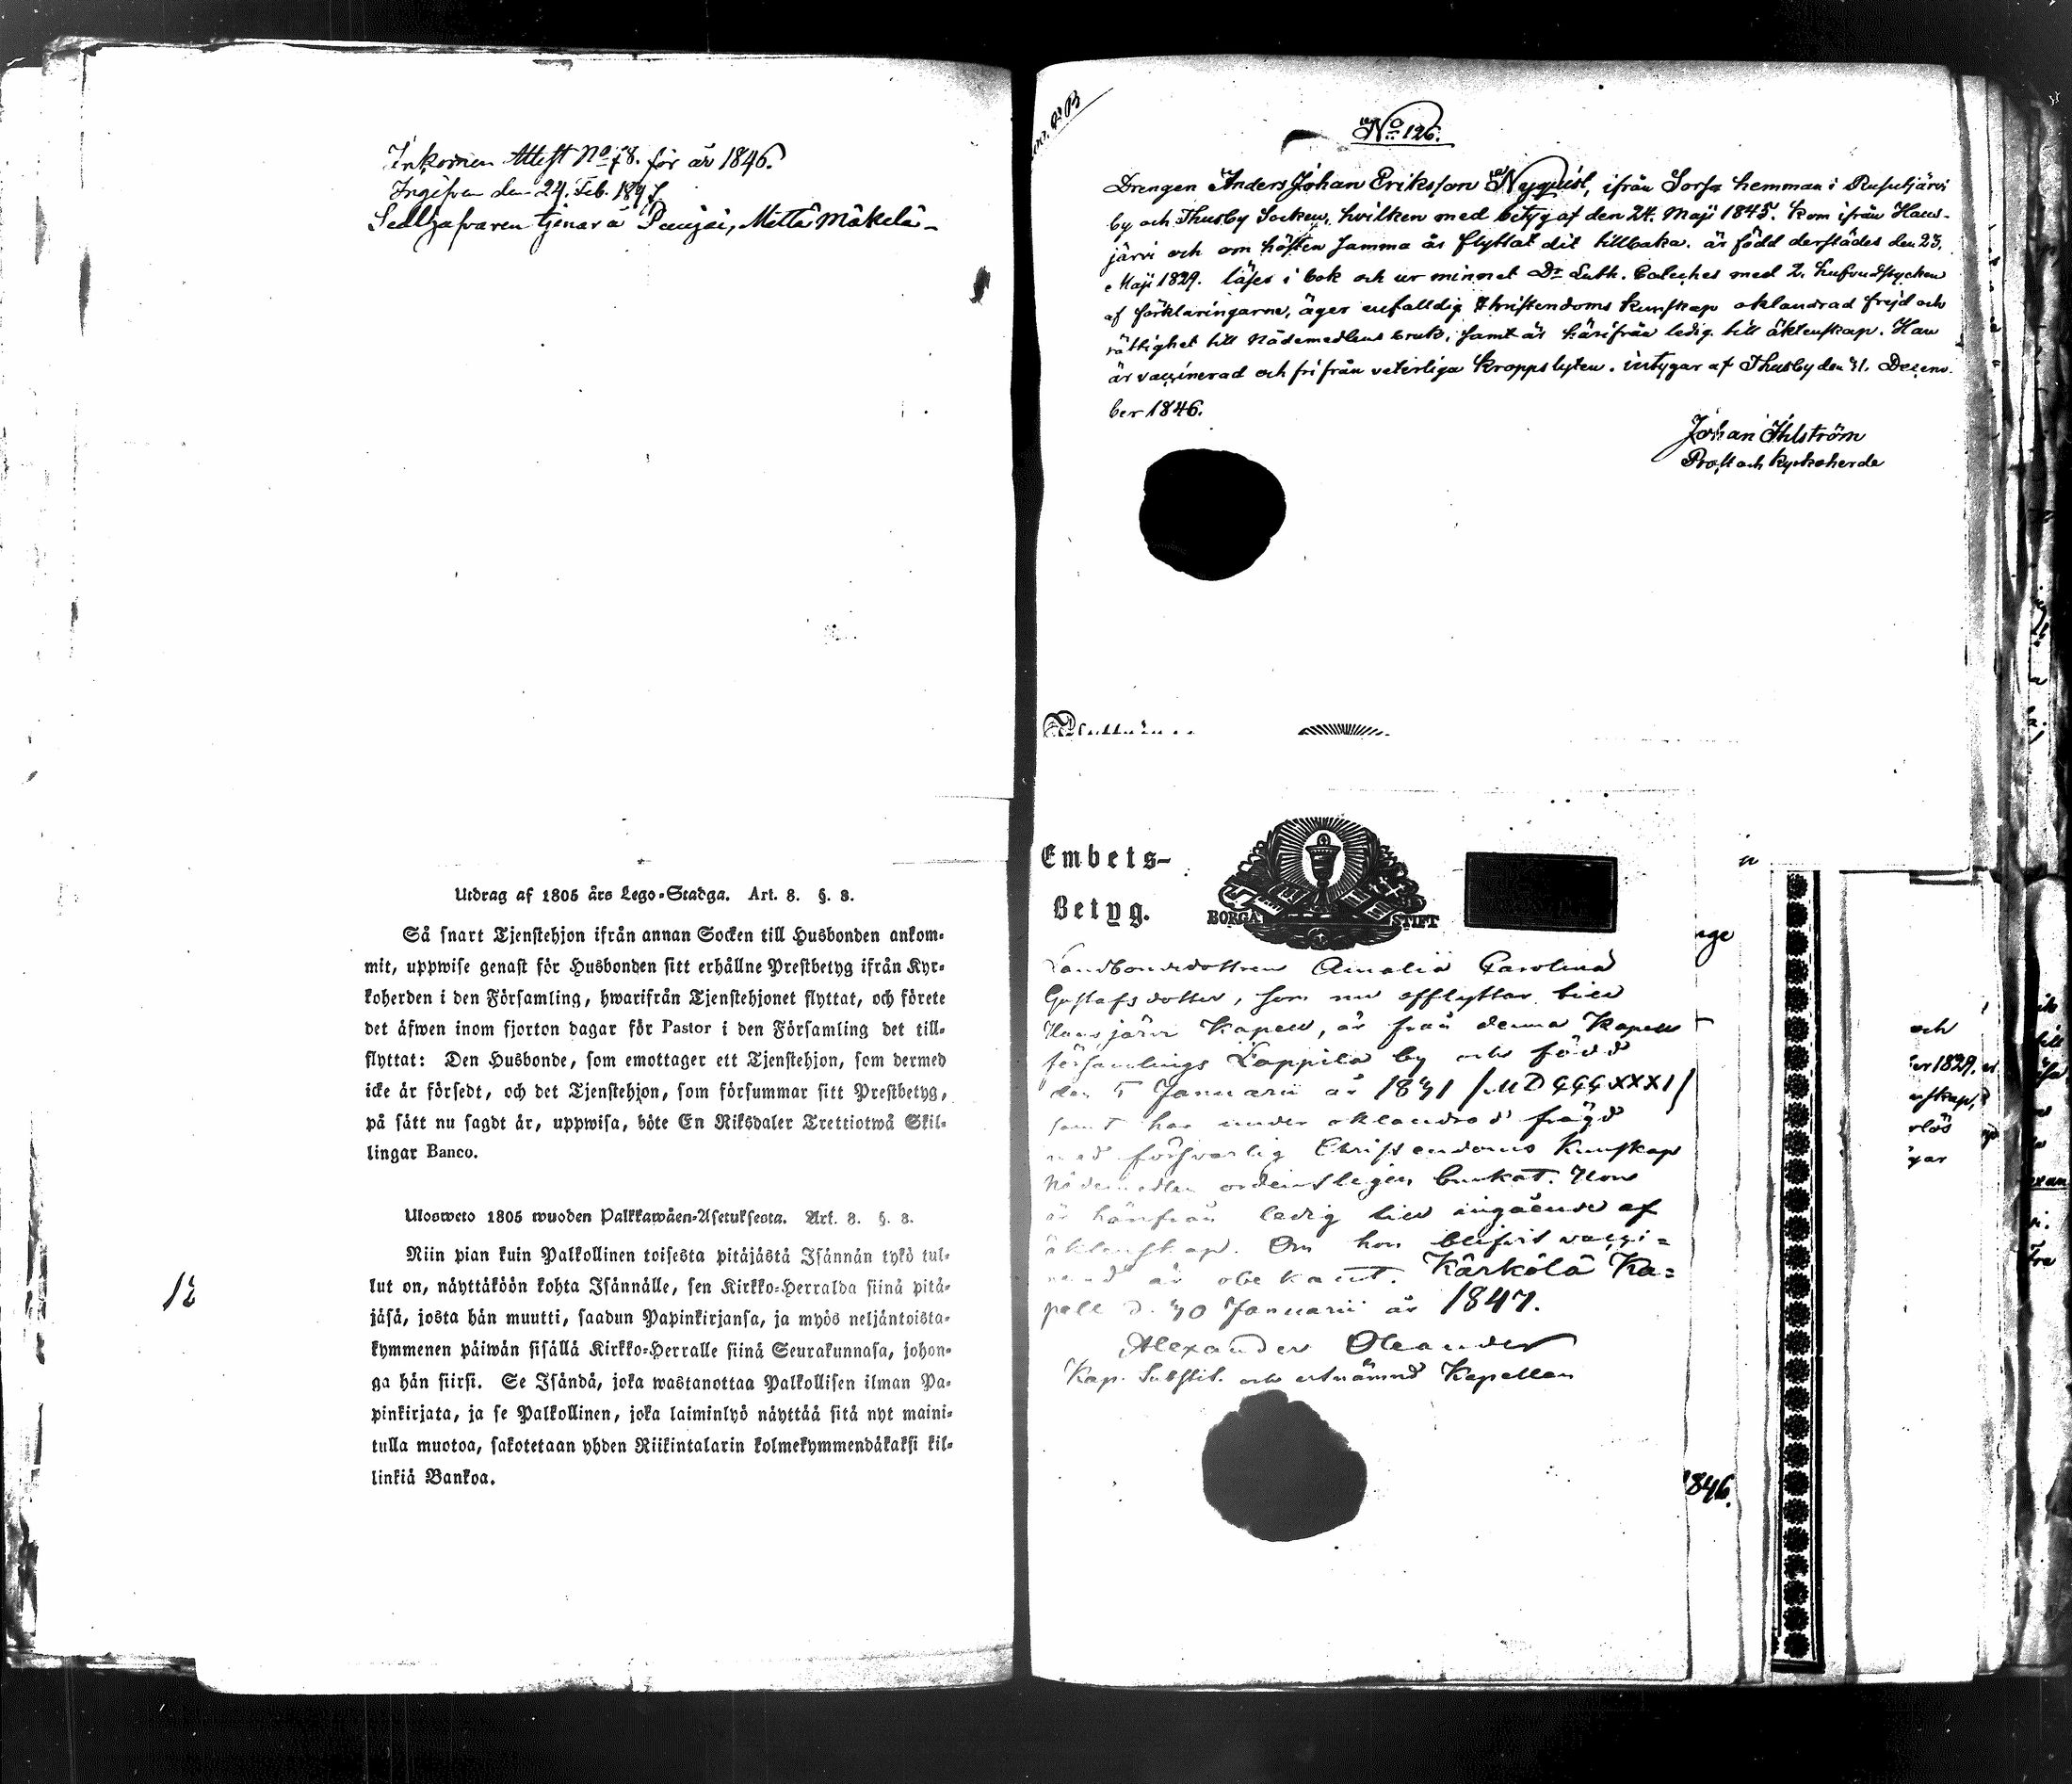 Inkommen Attest No 78. för år 1846.
Ingifven den 24. Feb. 1847.
Sedlhafvaren tjenar å Puujäi, Mettä Mäkelä
Utdrag af 1805 års Lego-Stadga. Art. 8. §. 8.
Så snart Tjenstehjon ifrån annan Socken till Husbonden ankom-
mit, uppwise genast för Husbonden sitt erhållne Prestbetyg ifrån Kyr-
koherden i den Församling, hwarifrån Tjenstehjonet flyttat, och förete
det äfwen inom fjorton dagar för Pastor i den Församling det till-
flyttat: Den Husbonde, som emottager ett Tjenstehjon, som dermed
icke är försedt, och det Tjenstehjon, som försummar sitt Prestbetyg,
på sätt nu sagdt är, uppwisa, böte En Riksdaler Trettiotwå Skil-
lingar Banco.
Ulosweto 1805 wuoden Palkkawäen-Asetuksesta. Art. 8. §. 8.
Niin pian kuin Palkollinen toisesta pitäjästä Isännän tykö tul-
lut on, näyttäköön kohta Isännälle, sen Kirkko-Herralda siinä pitä-
jäsä, josta hän muutti, saadun Papinkirjansa, ja myös neljäntoista-
kymmenen päiwän sisällä Kirkko-Herralle siinä Seurakunnasa, johon-
ga hän siirsi. Se Isändä, joka wastanottaa Palkollisen ilman Pa-
pinkirjata, ja se Palkollinen, joka laiminlyö näyttää sitä nyt maini-
tulla muotoa, sakotetaan yhden Riikintalarin kolmekymmendäkaksi kil-
linkiä Bankoa.
12
No 126.
Drengen Anders Johan Eriksson Nyquist, ifrån Sorsa hemman i Rusutjärvi
by och Thusby Socken, hvilken med betyg af den 24. Maji 1845. kom ifrån Haus-
järvi och om hösten samma år flyttat dit tillbaka. är född derstädes den 23.
Maji 1829. läses i bok och ur minnet Dr Luth. Cateches med 2. hufvudstycken
af förklaringarne, äger enfalldig Christendoms kunskap oklandrad frejd och
rättighet till Nådemedlens bruk, samt är härifrån ledig till äktenskap. Han
är vaccinerad och fri från veterliga kroppslyten. intygar af Thusby den 31. Decem-
ber 1846.
Johan Ihlström
Prost och Kyrkoherde
Embets-
Betyg.
BORGÅ STIFT
Landbondedottren Amalia Carolina
Gustafsdotter, som nu afflyttar till
Hausjärvi Kapell, är från denna Kapell
församlings Lappila by och född
den 5 Januarii år 1831 /MDCCCXXXI/
samt har under oklandrad frägd
med försvarlig Christendoms Kunskap
Nådemedlen ordentligen brukat. Hon
är härifrån ledig till ingående af
äktenskap. Om hon blifvit vacci-
nerad är obekant. Kärkölä Ka-
pell d. 30 Januarii år 1847.
Alexander Oleander
Kap. Substit. och utnämnd Kapellan
nge
1846.
och
er 1829.